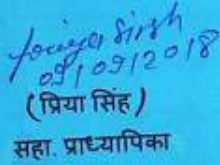 Priya Singh
09/09/2018
(प्रिया सिंह)
सहा. प्राध्यापिका